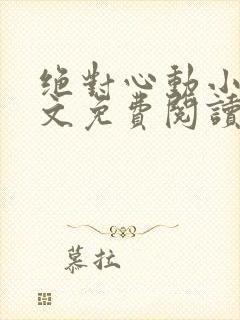 绝對心動小
文免費閱讀
慕拉